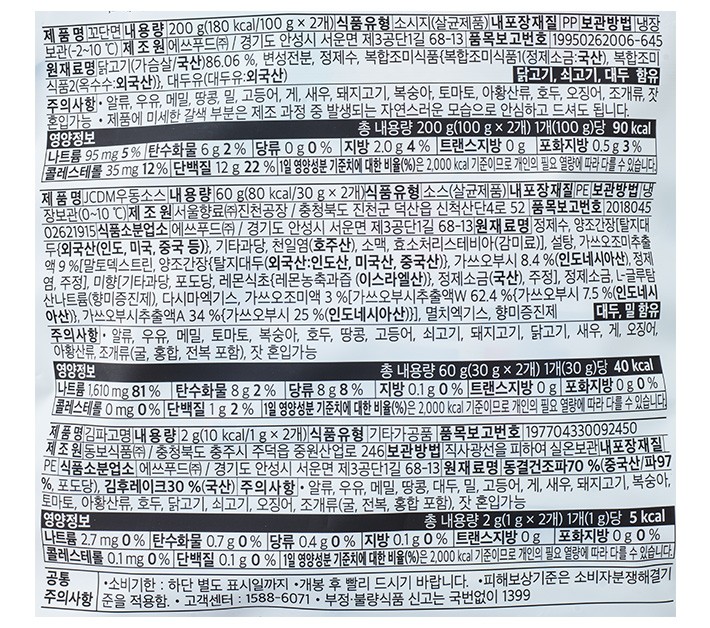 제 품 명 꼬단면 내용량 200 g(180 kcal/100 g × 2개) 식품유형 소시지(살균제품) 내포장재질 PP 보관방법 냉장
보관(-2~10 ℃) 제 조 원 에쓰푸드㈜ / 경기도 안성시 서운면 제3공단1길 68-13 품목보고번호 19950262006-645
원재료명 닭고기(가슴살/국산)86.06 %, 변성전분, 정제수, 복합조미식품{복합조미식품1(정제소금:국산), 복합조미
식품2(옥수수:외국산)}, 대두유(대두유:외국산) 닭고기, 쇠고기, 대두 함유
주의사항 • 알류, 우유, 메밀, 땅콩, 밀, 고등어, 게, 새우, 돼지고기, 복숭아, 토마토, 아황산류, 호두, 오징어, 조개류, 잣
혼입가능 • 제품에 미세한 갈색 부분은 제조 과정 중 발생되는 자연스러운 모습으로 안심하고 드셔도 됩니다.
영양정보 총 내용량 200 g(100 g × 2개) 1개(100 g)당 90 kcal
나트륨 95 mg 5 % 탄수화물 6 g 2 % 당류 0 g 0 % 지방 2.0 g 4 % 트랜스지방 0 g 포화지방 0.5 g 3 %
콜레스테롤 35 mg 12 % 단백질 12 g 22 % 1일 영양성분 기준치에 대한 비율(%)은 2,000 kcal 기준이므로 개인의 필요 열량에 따라 다를 수 있습니다.
제 품 명 JCDM우동소스 내용량 60 g(80 kcal/30 g × 2개) 식품유형 소스(살균제품) 내포장재질 PE 보관방법 냉
장보관(0~10 ℃) 제 조 원 서울향료㈜진천공장 / 충청북도 진천군 덕산읍 신척산단4로 52 품목보고번호 2018045
02621915 식품소분업소 에쓰푸드㈜ / 경기도 안성시 서운면 제3공단1길 68-13 원재료명 정제수, 양조간장{탈지대
두(외국산(인도, 미국, 중국 등)}, 기타과당, 천일염(호주산), 소맥, 효소처리스테비아(감미료)], 설탕, 가쓰오조미추출
액 9 %[말토덱스트린, 양조간장{탈지대두(외국산:인도산, 미국산, 중국산), 가쓰오부시 8.4 %(인도네시아산), 정제
염, 주정], 미향[기타과당, 포도당, 레몬식초{레몬농축과즙 (이스라엘산)}, 정제소금(국산), 주정], 정제소금, L-글루탐
산나트륨(향미증진제), 다시마엑기스, 가쓰오조미액 3 %[가쓰오부시추출액W 62.4 %{가쓰오부시 7.5 %(인도네시
아산)}, 가쓰오부시추출액A 34 %{가쓰오부시 25 %(인도네시아산)}], 멸치엑기스, 향미증진제 대두, 밀 함유
주의사항 • 알류, 우유, 메밀, 토마토, 복숭아, 호두, 땅콩, 고등어, 쇠고기, 돼지고기, 닭고기, 새우, 게, 오징어,
아황산류, 조개류(굴, 홍합, 전복 포함), 잣 혼입가능
영양정보 총 내용량 60 g(30 g × 2개) 1개(30 g)당 40 kcal
나트륨 1,610 mg 81 % 탄수화물 8 g 2 % 당류 8 g 8 % 지방 0.1 g 0 % 트랜스지방 0 g 포화지방 0 g 0 %
콜레스테롤 0 mg 0 % 단백질 1 g 2 % 1일 영양성분 기준치에 대한 비율(%)은 2,000 kcal 기준이므로 개인의 필요 열량에 따라 다를 수 있습니다.
제 품 명 김파고명 내용량 2 g(10 kcal/1 g × 2개) 식품유형 기타가공품 품목보고번호 197704330092450
제 조 원 동보식품㈜ / 충청북도 충주시 주덕읍 중원산업로 246 보관방법 직사광선을 피하여 실온보관 내포장재질
PE 식품소분업소 에쓰푸드㈜ / 경기도 안성시 서운면 제3공단1길 68-13 원재료명 동결건조파70 %(중국산/파97
%, 포도당), 김후레이크30 %(국산) 주의사항 • 알류, 우유, 메밀, 땅콩, 대두, 밀, 고등어, 게, 새우, 돼지고기, 복숭아,
토마토, 아황산류, 호두, 닭고기, 쇠고기, 오징어, 조개류(굴, 전복, 홍합 포함), 잣 혼입가능
영양정보 총 내용량 2 g(1 g × 2개) 1개(1 g)당 5 kcal
나트륨 2.7 mg 0 % 탄수화물 0.7 g 0 % 당류 0.4 g 0 % 지방 0.1 g 0 % 트랜스지방 0 g 포화지방 0 g 0 %
콜레스테롤 0.1 mg 0 % 단백질 0.1 g 0 % 1일 영양성분 기준치에 대한 비율(%)은 2,000 kcal 기준이므로 개인의 필요 열량에 따라 다를 수 있습니다.
공통 주의사항 •소비기한 : 하단 별도 표시일까지 •개봉 후 빨리 드시기 바랍니다. •피해보상기준은 소비자분쟁해결기
준을 적용함. • 고객센터 : 1588-6071 • 부정·불량식품 신고는 국번없이 1399